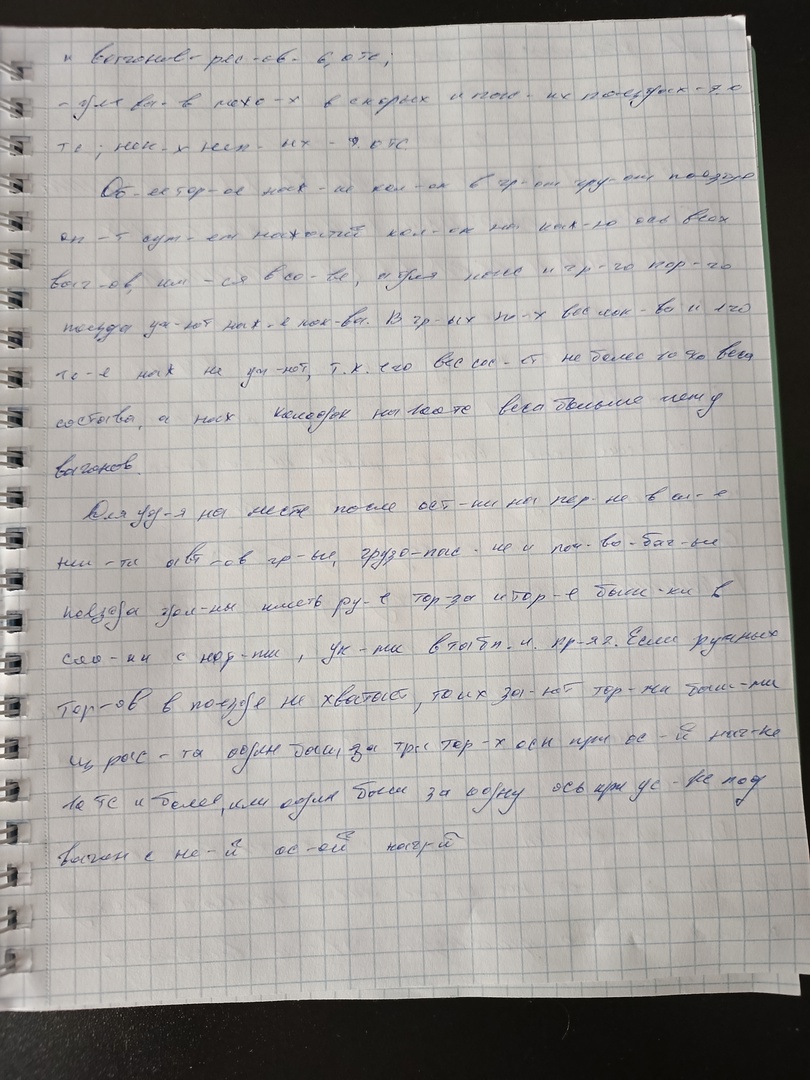 и вагонов-рес-ов- 6,0 тс;
-для ва-в нахо-х в скорых и пас-их поездах-7.0
тс; нек-х неп- их - 9.0 тс.
Об-ее тор-ое наж-ие кол-ок в гр-ом гру-ом поезде
оп-т сум-ем нажатий кол-ок на каж-ю ось всех
ваг-ов, им-ся в со-ве, а для пасс и гр-го пор-го
поезда уч-ют наж-е лок-ва. В гр-ых по-х вес лок-ва и его
то-е наж не уч-ют, т.к. его вес сос-ет не более 10 % веса
состава, а наж колодок на 100 тс веса больше чем у
вагонов.
Для уд-я на месте после ост-ки на пер-не в сл-е
ав-ов гр-ые, грузо-пас-ие и поч-во-баг-ые
поезда дол-ны иметь ру-е тор-за и тор-е баш-ки в
соо-ии с нор-ми, ук-ми в табл. и. пр-я 2. Если ручных
тор-ов в поезде не хватает, то их за-ют тор-ми баш-ми
из рас-та один баш. за три тор-х оси при ос-й наг-ке
10 тс и более, или один баш за одну ось при ус-ке под
вагон с ме-й ос-ой нагр-й